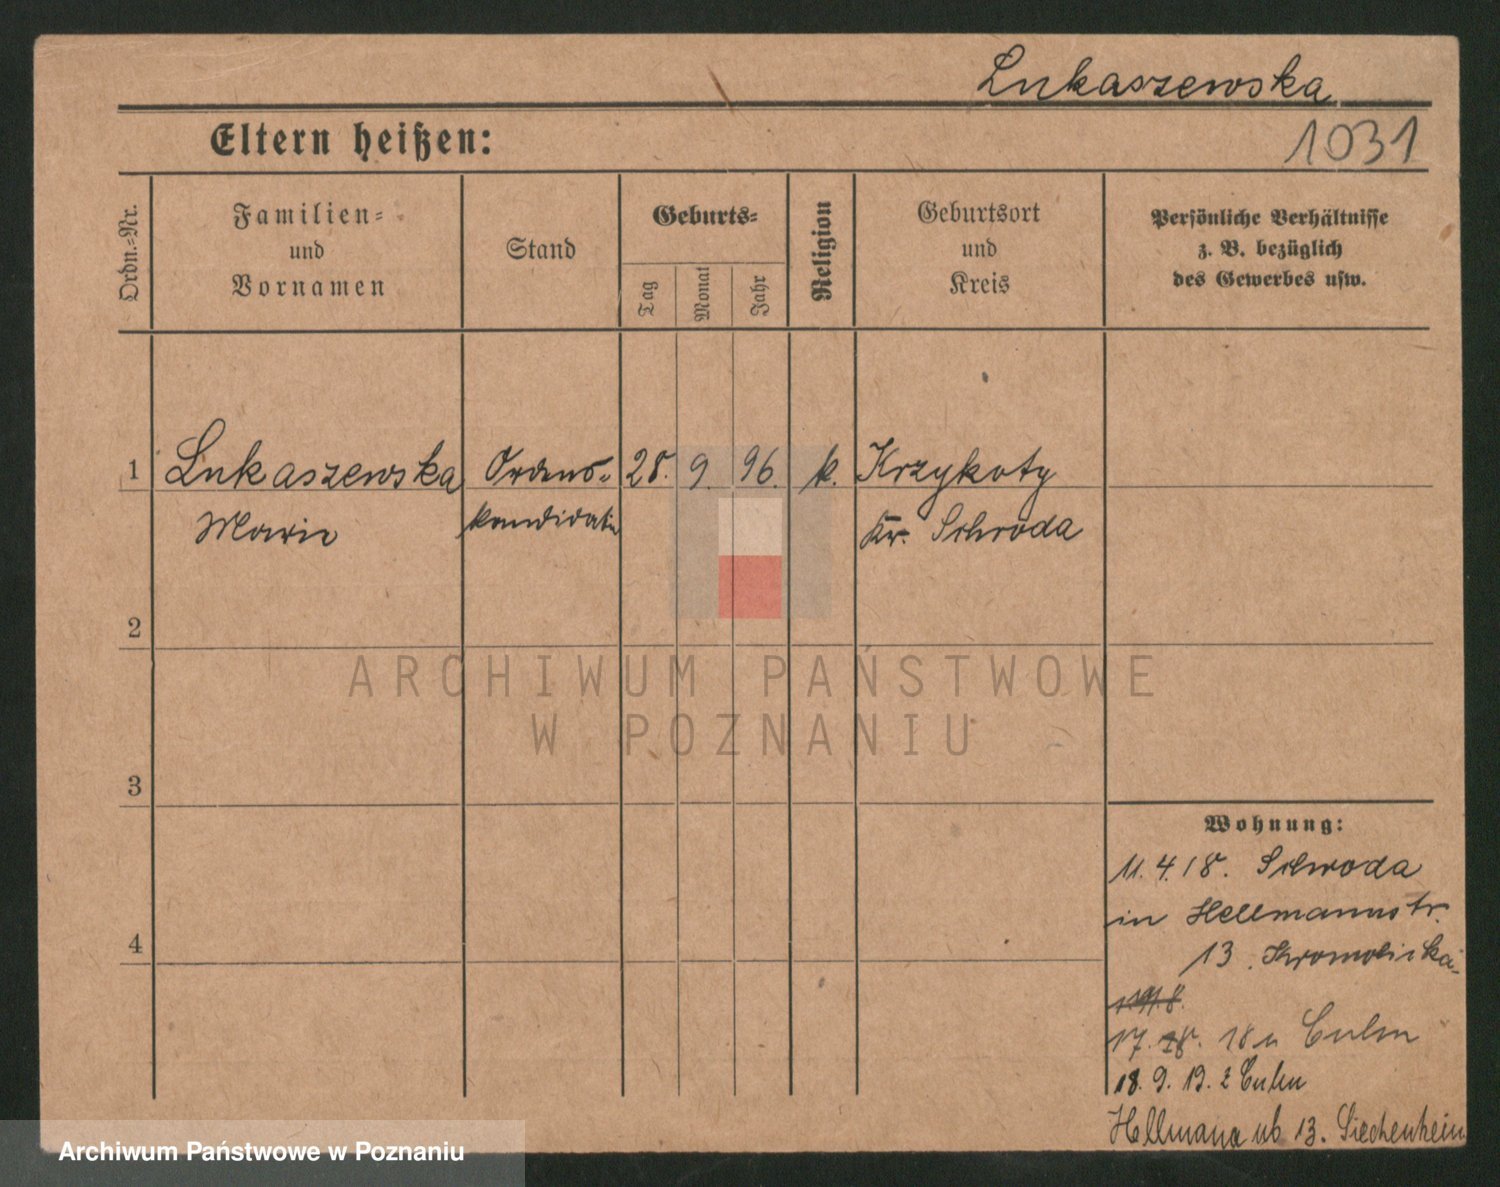 Lukaszewska
Eltern heißen:
1031
Ordn.=Nr.
Familien=
und
Vornamen
Stand
Geburts=
Tag
Monat
Jahr
Religion
Geburtsort
und
Kreis
Persönliche Verhältnisse
z. B. bezüglich
des Gewerbes usw.
1 Lukaszewska Ordens= 28. 9. 96. k. Krzykoty
Marie kandidatin Kr. Schroda
2
3
4
ARCHIWUM PAŃSTWOWE
W POZNANIU
Wohnung:
11. 4. 18. Schroda
in Hellmannstr.
13.
17. 18 n Culm
18. 9. 19. z Culm
13. Siechenheim
Archiwum Państwowe w Poznaniu